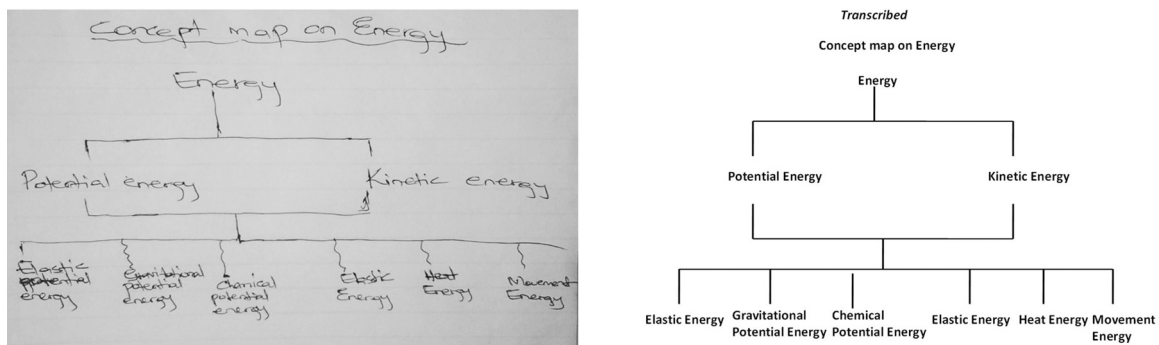 Concept map on Energy
Energy
Potential energy
Kinetic energy
Elastic
potential
energy
Gravitational
potential
energy
Chemical
potential
energy
Elastic
Energy
Heat
Energy
Movement
Energy
Transcribed
Concept map on Energy
Energy
Potential Energy
Kinetic Energy
Elastic Energy
Gravitational
Potential Energy
Chemical
Potential Energy
Elastic Energy
Heat Energy
Movement
Energy